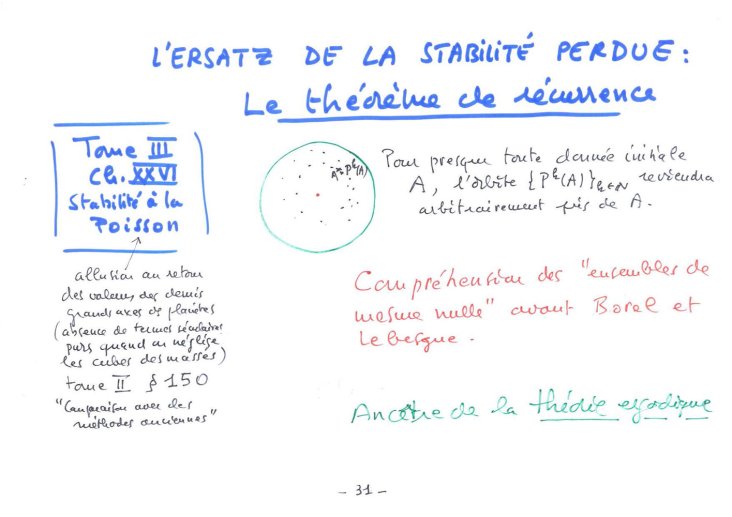 L'ERSATZ DE LA STABILITÉ PERDUE :
Le théorème de récurrence
Tome III
Ch. XXVI
Stabilité à la
Poisson
allusion au retour
des valeurs des demis
grands axes des planètes
(absence de termes séculaires
purs quand on néglige
les cubes des masses)
tome II § 150
"Comparaison avec des
méthodes anciennes"
A P^k(A)
Pour presque toute donnée initiale
A, l'orbite {P^k(A)}_{k∈N} reviendra
arbitrairement près de A.
Compréhension des "ensembles de
mesure nulle" avant Borel et
Lebesgue.
Ancêtre de la théorie ergodique
- 31 -